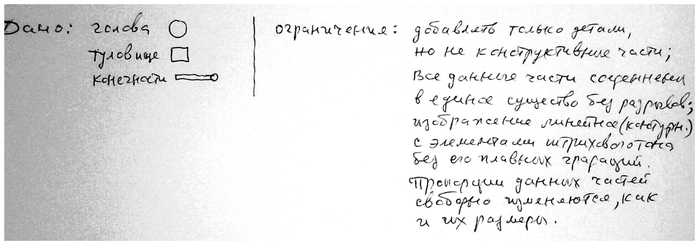 Дано: голова
туловище
конечности
ограничения: добавлять только детали,
но не конструктивные части;
Все данные части соединены
в единое существо без разрывов;
изображение линейное (контурн.)
с элементами штрихового тона
без его плавных градаций.
Пропорции данных частей
свободно изменяются, как
и их размеры.